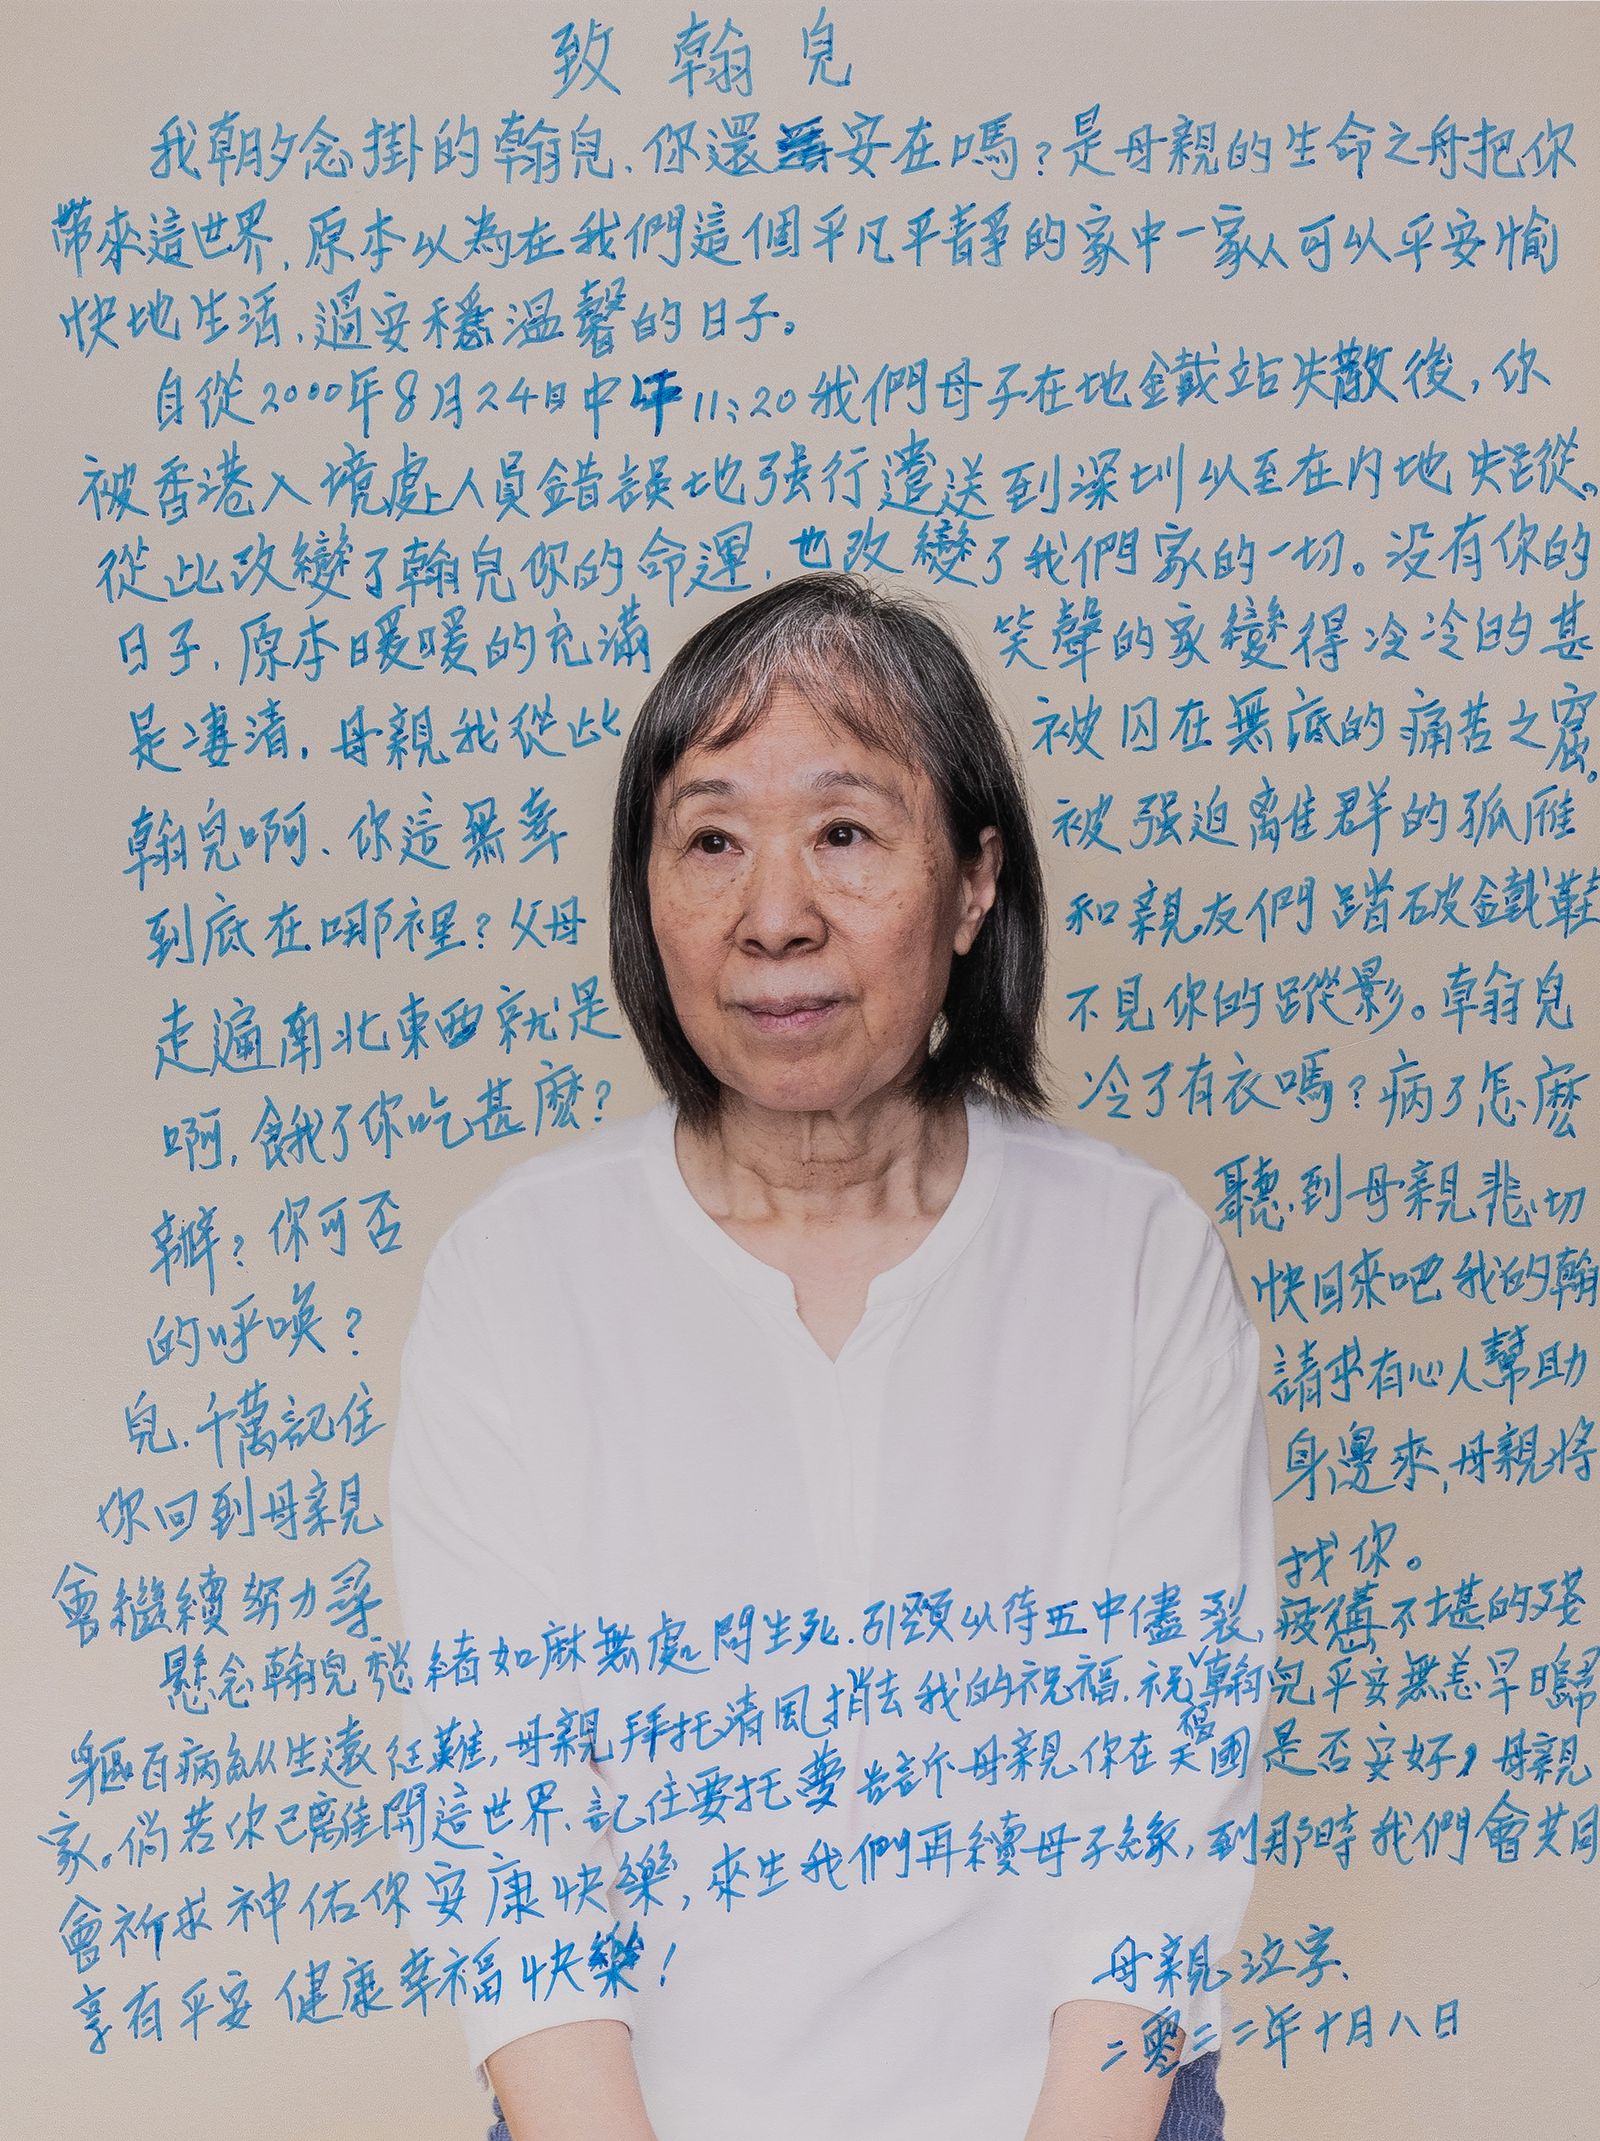 致翰兒
我朝夕念掛的翰兒、你還安在嗎?是母親的生命之舟把你
帶來這世界、原本以為在我們這個平凡平靜的家中一家人可以平安愉
快地生活、過安穩溫馨的日子。
自從2000年8月24日中午11:20我們母子在地鐵站失散後,你
被香港入境處人員錯誤地强行遣送到深圳以至在内地失蹤。
從此改變了翰兒你的命運、也改變了我們家的一切。没有你的
日子、原本暖暖的充滿笑聲的家變得冷冷的甚
是凄清、母親我從此被囚在無底的痛苦之窟。
翰兒啊、你這無辜被强迫離群的孤雁
到底在哪裡?父母和親友們踏破鐵鞋
走遍南北東西就是不見你的蹤影。翰兒
啊、餓了你吃甚麼?冷了有衣嗎?病了怎麼
辦?你可否聽到母親悲切
的呼喚?快回來吧我的翰
兒、千萬記住請求有心人幫助
你回到母親身邊來,母親將
會繼續努力尋找你。
懸念翰兒愁緒如麻無處問生死、引頸以待五中儘裂、疲憊不堪的殘
軀百病叢生遠征難,母親拜托清風捎去我的祝福、祝翰兒平安無恙早日歸
家。倘若你已離開這世界、記住要托夢告訴母親你在天國是否安好,母親
會祈求神佑你安康快樂,來生我們再續母子緣,到那時我們會共同
享有平安健康幸福快樂!
母親泣字、
二零二二年十月八日